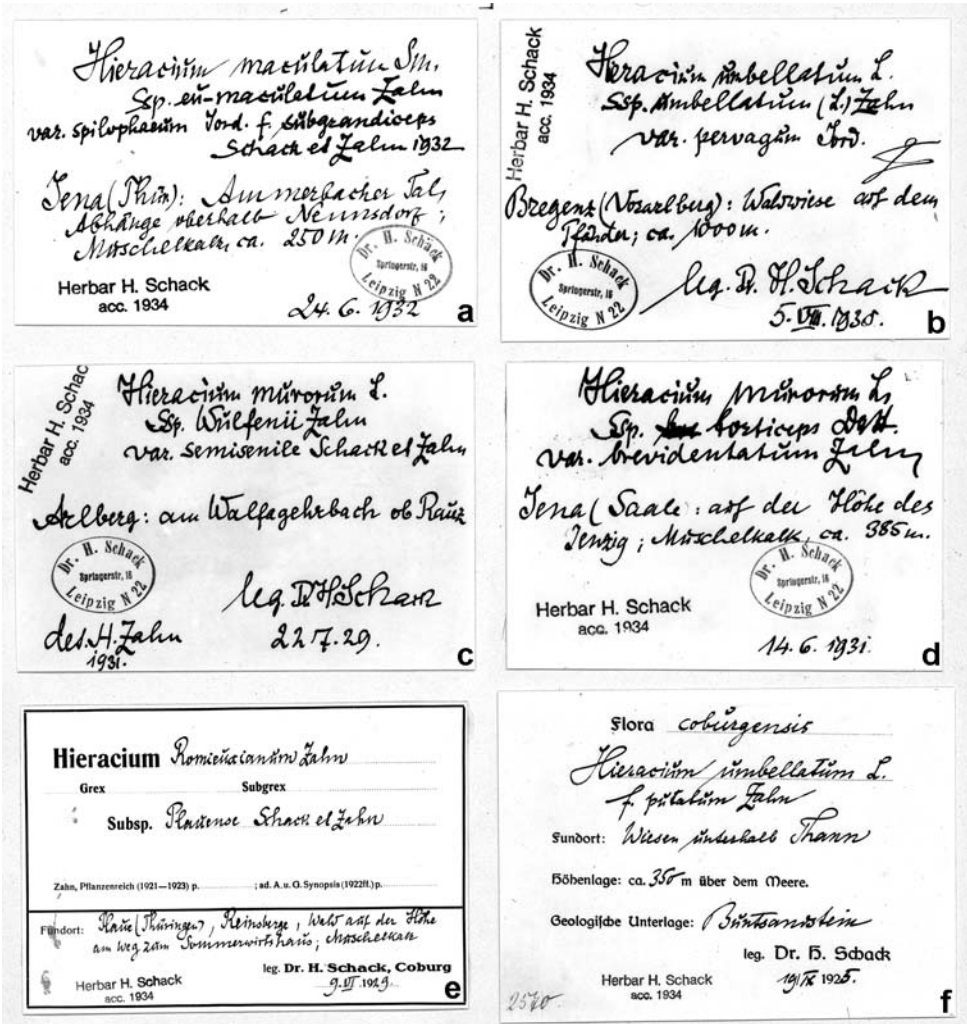 Hieracium maculatum Sm.
Ssp. eu-maculatum Zahn
var. spilophaeum Jord. f. subgrandiceps
Schack et Zahn 1932
Jena (Thür): Ammerbacher Tal,
Abhänge oberhalb Nennsdorf;
Muschelkalk, ca. 250 m.
Dr. H. Schack
Springerstr. 16
Leipzig N 22
Herbar H. Schack
acc. 1934
24. 6. 1932
a
Herbar H. Schack
acc. 1934
Hieracium umbellatum L.
Ssp. umbellatum (L.) Zahn
var. pervagum Jord.
Bregenz (Vorarlberg): Waldwiese auf dem
Pfänder; ca. 1000 m.
Dr. H. Schack
Springerstr. 16
Leipzig N 22
leg. Dr. H. Schack
5. VIII. 1930.
b
Herbar H. Schac
acc. 1934
Hieracium murorum L.
Ssp. Wulfenii Zahn
var. semisenile Schack et Zahn
Arlberg: am Walfagehrbach ob Rauz
Dr. H. Schack
Springerstr. 16
Leipzig N 22
leg. Dr H Schack
des. H. Zahn
1931.
22.7.29.
c
Hieracium murorum L.
Ssp. torticeps Dahl.
var. brevidentatum Zahn
Jena (Saale: auf der Höhe des
Jenzig; Muschelkalk, ca. 385 m.
Dr. H. Schack
Springerstr. 16
Leipzig N 22
Herbar H. Schack
acc. 1934
14. 6. 1931.
d
Hieracium Romieuxianum Zahn
Grex Subgrex
Subsp. Plauense Schack et Zahn
Zahn, Pflanzenreich (1921—1923) p. ; ad. A. u. G. Synopsis (1922ff.) p.
Fundort: Plaue (Thüringen), Reinsberge, Wald auf der Höhe
am Weg zum Sommerwirtshaus; Muschelkalk
leg. Dr. H. Schack, Coburg
9. VI. 1929.
Herbar H. Schack
acc. 1934
e
Flora coburgensis
Hieracium umbellatum L.
f. putatum Zahn
Fundort: Wiesen unterhalb Thann
Höhenlage: ca. 350 m über dem Meere.
Geologische Unterlage: Buntsandstein
leg. Dr. H. Schack
19/IX 1925.
Herbar H. Schack
acc. 1934
f